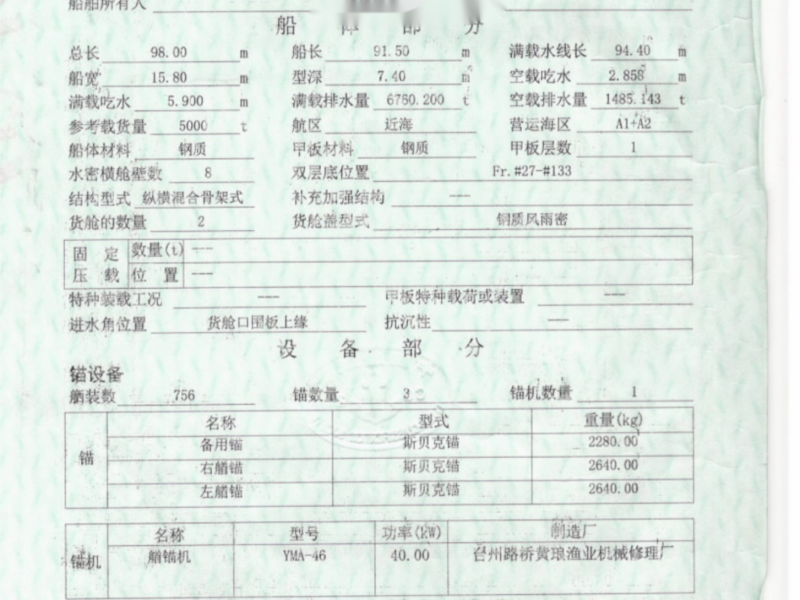 船舶所有人
船 体 部 分
总长 98.00 m 船长 91.50 m 满载水线长 94.40 m
船宽 15.80 m 型深 7.40 m 空载吃水 2.858 m
满载吃水 5.900 m 满载排水量 6760.200 t 空载排水量 1485.143 t
参考载货量 5000 t 航区 近海 营运海区 A1+A2
船体材料 钢质 甲板材料 钢质 甲板层数 1
水密横舱壁数 8 双层底位置 Fr.#27-#133
结构型式 纵横混合骨架式 补充加强结构 ---
货舱的数量 2 货舱盖型式 钢质风雨密
固 定 数量(t) ---
压 载 位 置 ---
特种装载工况 --- 甲板特种载荷或装置 ---
进水角位置 货舱口围板上缘 抗沉性 ---
设 备 部 分
锚设备
艏装数 756 锚数量 3 锚机数量 1
名称 型式 重量(kg)
锚
备用锚 斯贝克锚 2280.00
右艏锚 斯贝克锚 2640.00
左艏锚 斯贝克锚 2640.00
名称 型号 功率(kW) 制造厂
锚机 艏锚机 YMA-46 40.00 台州路桥黄琅渔业机械修理厂